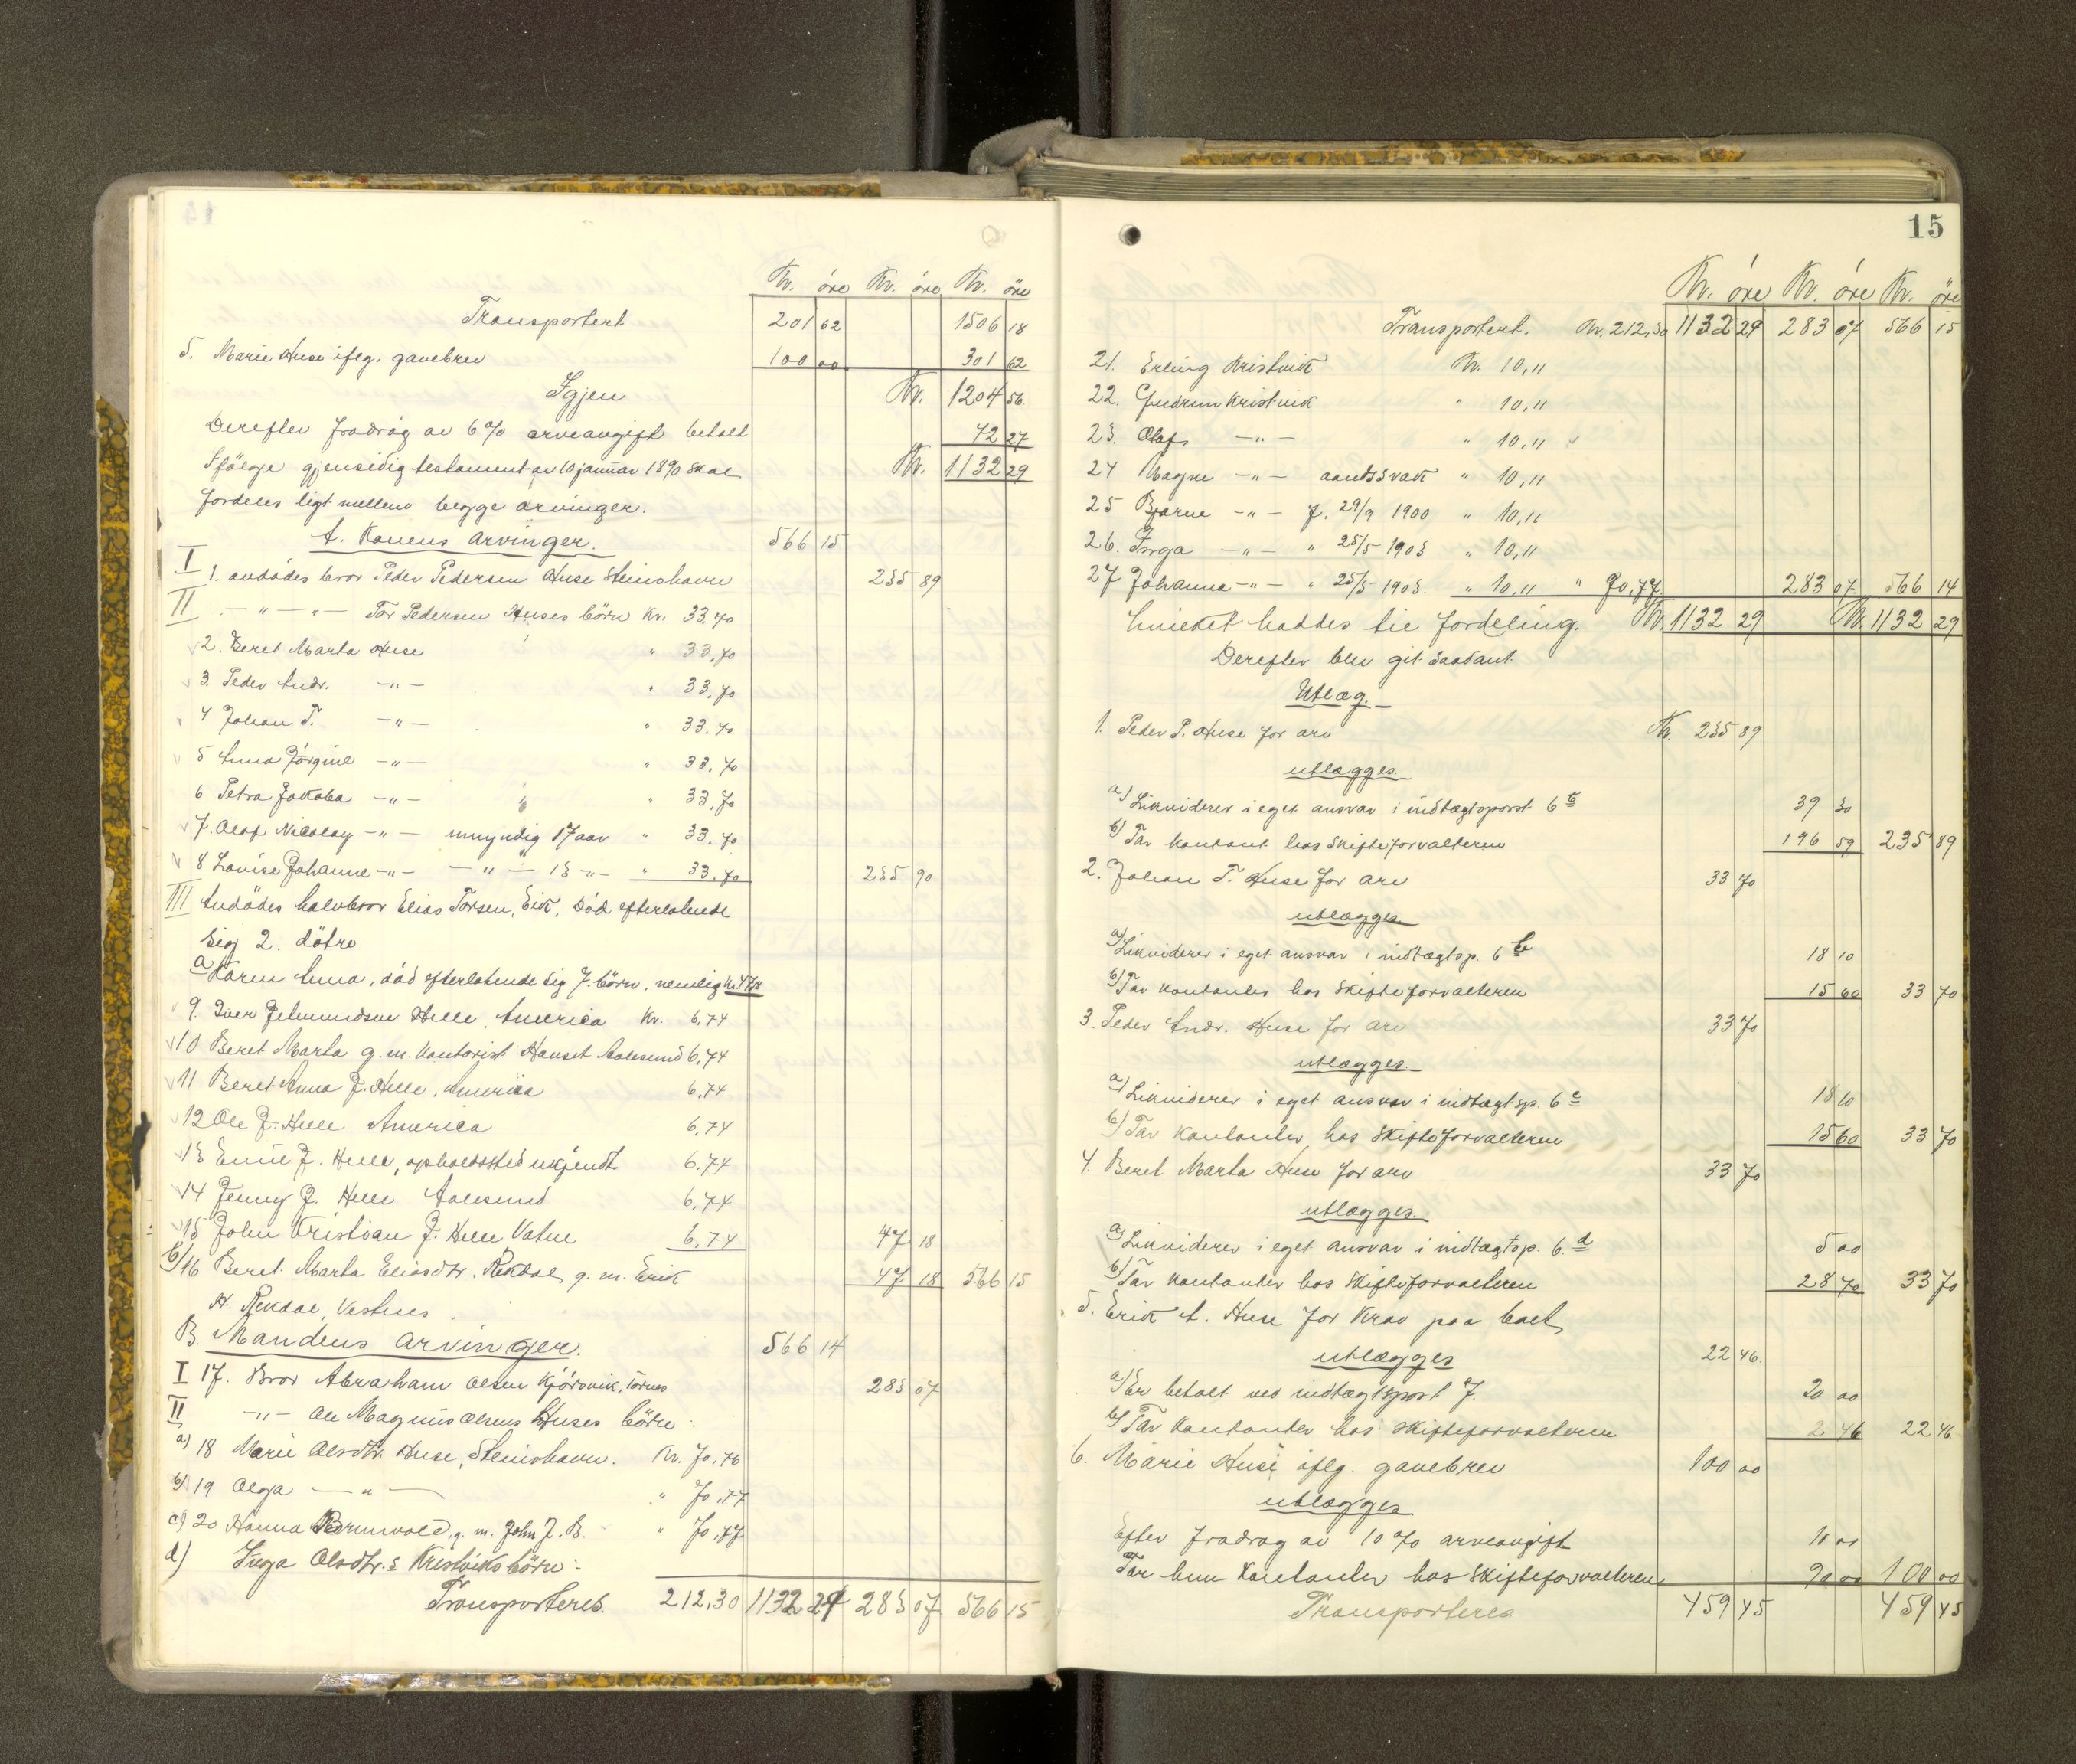 Kr. öre Kr. öre Kr. öre
Transportert 201 62 1506 18
5. Marie Huse iflg. gavebrev 100 00 301 62
Igjen Kr. 1204 56
Derefter fradrag av 6% arveavgift betalt 72 27
Ifölge gjensidig testament av 10 januar 1890 skal Kr. 1132 29
fordeles ligt mellem begge arvinger.
A. Konens arvinger. 566 15
I 1. avdödes bror Peder Pedersen Huse Steinshavn 235 89
II - " - " - Tor Pedersen Huses börn Kr. 33,70
2. Beret Marta Huse " 33,70
3. Peder Andr. - " - " 33,70
4 Johan T. - " - " 33,70
5 Anna Jörgine - " - " 33,70
6 Petra Jakoba - " - " 33,70
7. Olaf Nicolay - " - umyndig 17 aar " 33,70
8 Lovise Johanne - " - - " - 13 - " - " 33,70 235 90
III Avdödes halvbror Elias Torsen, Eik, död efterlatende
sig 2. dötre
a Karen Anna, död efterlatende sig 7. börn, nemlig kr. 47,18
9. Iver Jetmundsen Helle, America Kr. 6,74
10 Beret Marta g. m. kontorist Hauset Aalesund 6,74
11 Beret Anna J. Helle, America 6,74
12 Ole J. Helle America 6,74
13 Emil J. Helle, opholdssted ukjendt 6,74
14 Jenny J. Helle Aalesund 6,74
15 John Kristian J. Helle Vatne 6,74 47 18
b/ 16 Beret Marta Eliasdtr. Rekdal g. m. Erik 47 18 566 15
H. Rekdal, Vestnes
B. Mandens arvinger. 566 14
I 17. Bror Abraham Olsen Kjörsvik, Tornes 283 07
II - " - Ole Magnus Olsens Huses börn:
a) 18 Marie Olsdtr. Huse, Steinshavn. Kr. 70,76
b) 19 Olga - " - " 70,77
c) 20 Hanna Bormvold, g. m. John J. B. " 70,77
d) Inga Olsdtr.s Kristviks börn:
Transporteres. 212,30 1132 29 283 07 566 15
15
Kr. öre Kr. öre Kr. öre
Transportert. Kr. 212,30 1132 29 283 07 566 15
21. Erling Kristvik Kr. 10,"
22. Gudrun Kristvik " 10,"
23. Olaf - " - " 10,"
24 Magne - " - aandssvak " 10,"
25 Bjarne - " - f. 29/9 1900 " 10,"
26. Inga - " - " 25/5 1903 " 10,"
27 Johanna - " - " 25/5 1903. " 10," " 70,77 283 07. 566 14
hvilket haddes til fordeling. Kr. 1132 29 Kr. 1132 29
Derefter blev git saadant
Utlæg.
1. Peder P. Huse for arv Kr. 235 89
utlægges.
a) Likviderer i eget ansvar i indtægtspost 6 39 30
b) Tar kontant hos Skifteforvalteren 196 59 235 89
2. Johan T. Huse for arv 33 70
utlægges
a) Likviderer i eget ansvar i indtægtsp. 6 b 18 10
b) Tar kontanter hos Skifteforvalteren 15 60 33 70
3. Peder Andr. Huse for arv 33 70
utlægges.
a) Likviderer i eget ansvar i indtægtsp. 6 c 18 10
b) Tar kontanter hos Skifteforvalteren 15 60 33 70
4. Beret Marta Huse for arv 33 70
utlægges.
a) Likviderer i eget ansvar i indtægtsp. 6. d 5 00
b) Tar kontanter hos Skifteforvalteren 28 70 33 70
5. Erik A. Huse for krav paa boet
utlægges 22 46.
a) Er betalt ved indtægtspost 7. 20 00
b) Tar kontanter hos skifteforvalteren 2 46 22 46
6. Marie Huse iflg. gavebrev 100 00
utlægges
Efter fradrag av 10 % arveavgift 10 00
Tar hun kontanter hos Skifteforvalteren 90 00 100 00
Transporteres 459 45 459 45